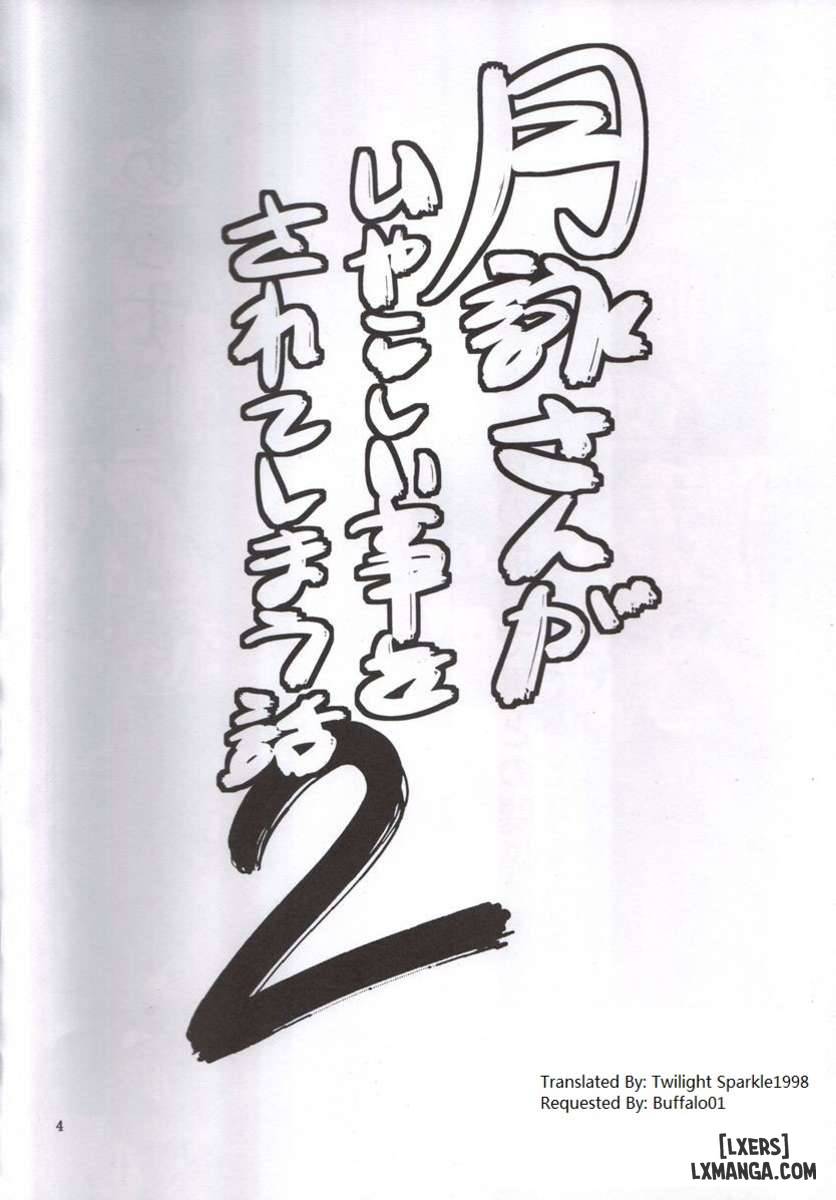 月詠さんが
いやらしい事を
されてしまう話
2
Translated By: Twilight Sparkle1998
Requested By: Buffalo01
4
[LXERS]
LXMANGA.COM